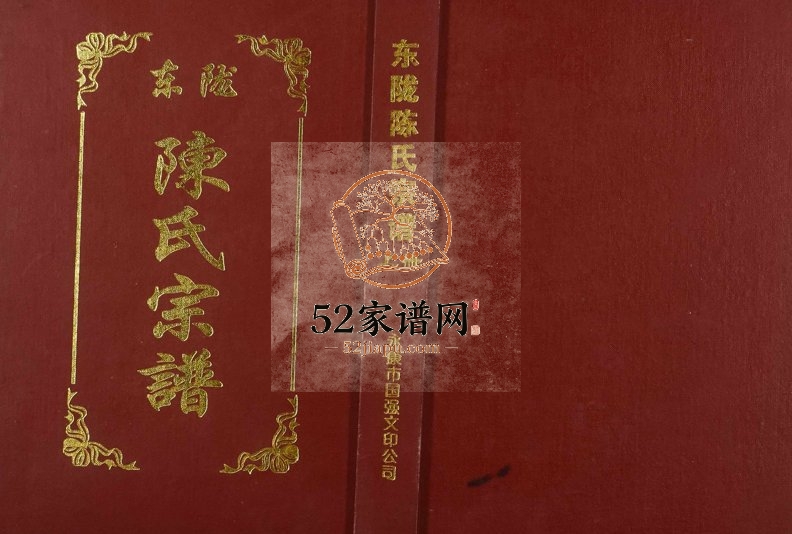 东陇
陳氏宗譜
东陇陈氏宗谱
永康市国强文印公司
52家谱网